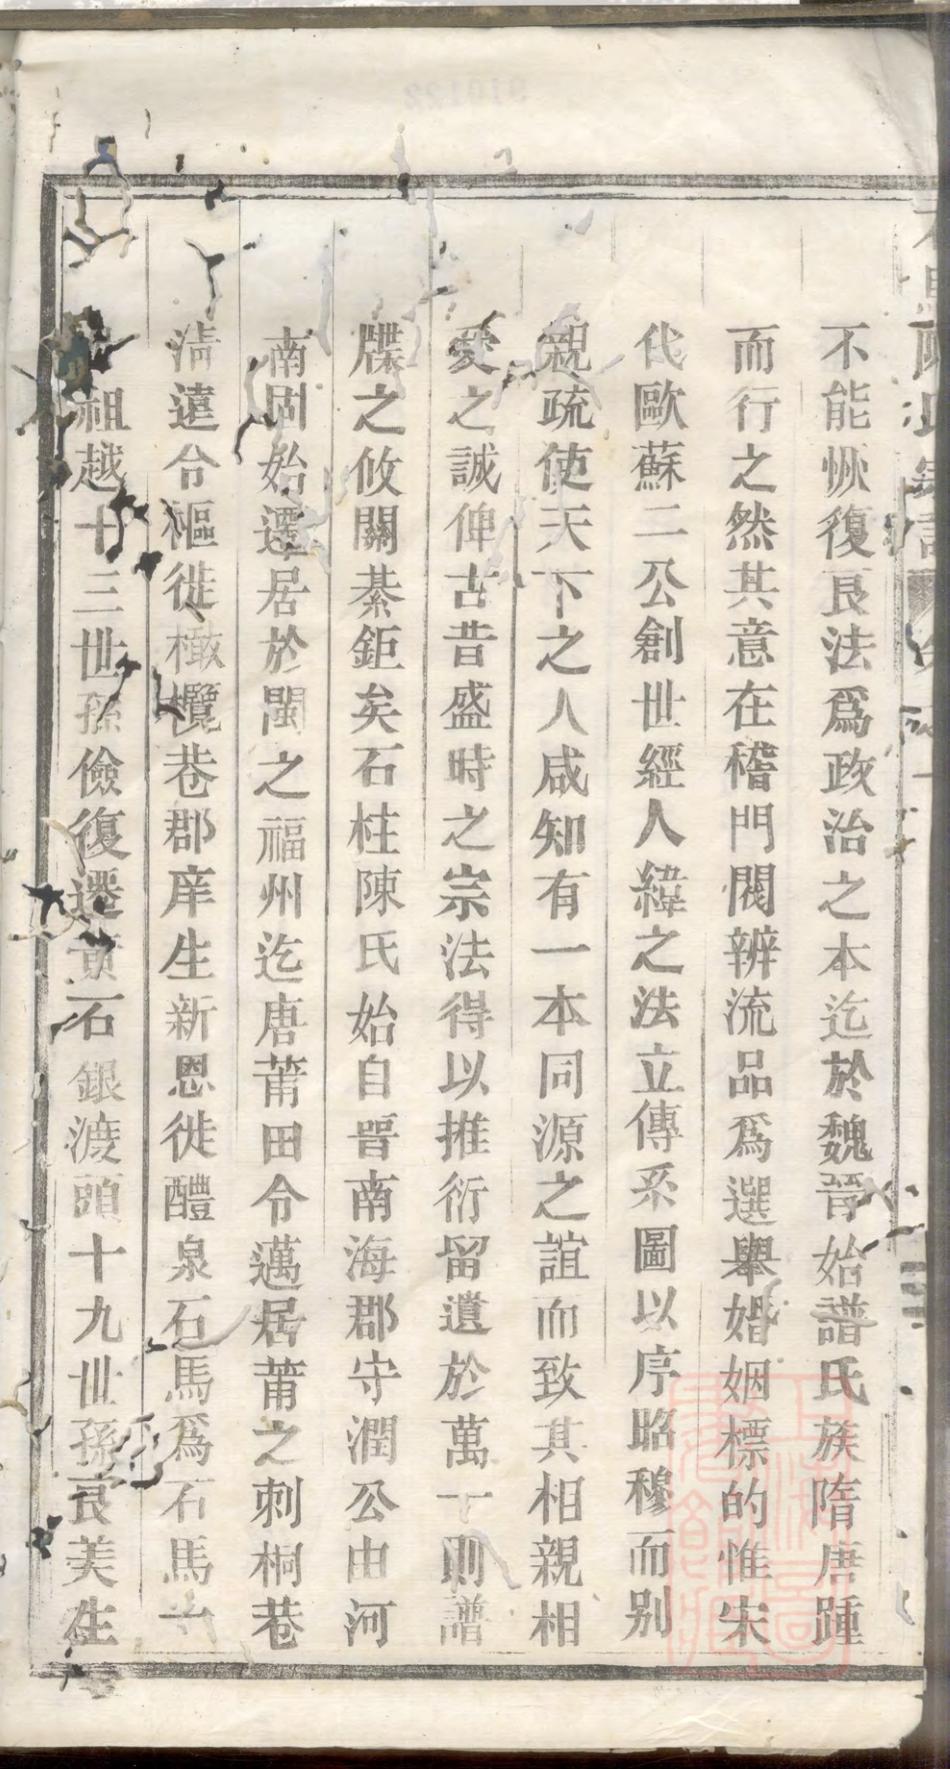 不能恢復良法爲政治之本迄於魏晉始譜氏族隋唐踵
而行之然其意在稽門閥辨流品爲選舉婚姻標的惟宋
代歐蘇二公創世經人緯之法立傳系圖以序昭穆而别
親疏使天下之人咸知有一本同源之誼而致其相親相
愛之誠俾古昔盛時之宗法得以推衍留遺於萬一則譜
牒之攸關綦鉅矣石柱陳氏始自晉南海郡守潤公由河
南固始遷居於閩之福州迄唐莆田令邁居莆之刺桐巷
淸遠令樞徙橄欖巷郡庠生新恩徙醴泉石馬爲石馬一
祖越十三世孫儉復遷黄石銀渡頭十九世孫良美生